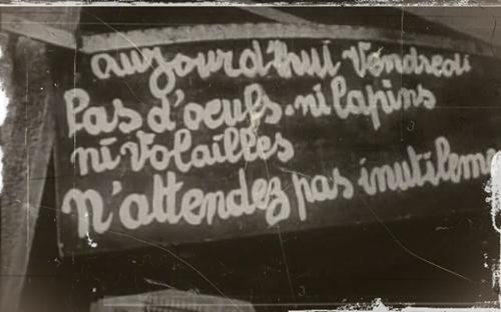 aujourd'hui Vendredi
Pas d'oeufs. ni lapins
ni Volailles
N'attendez pas inutileme